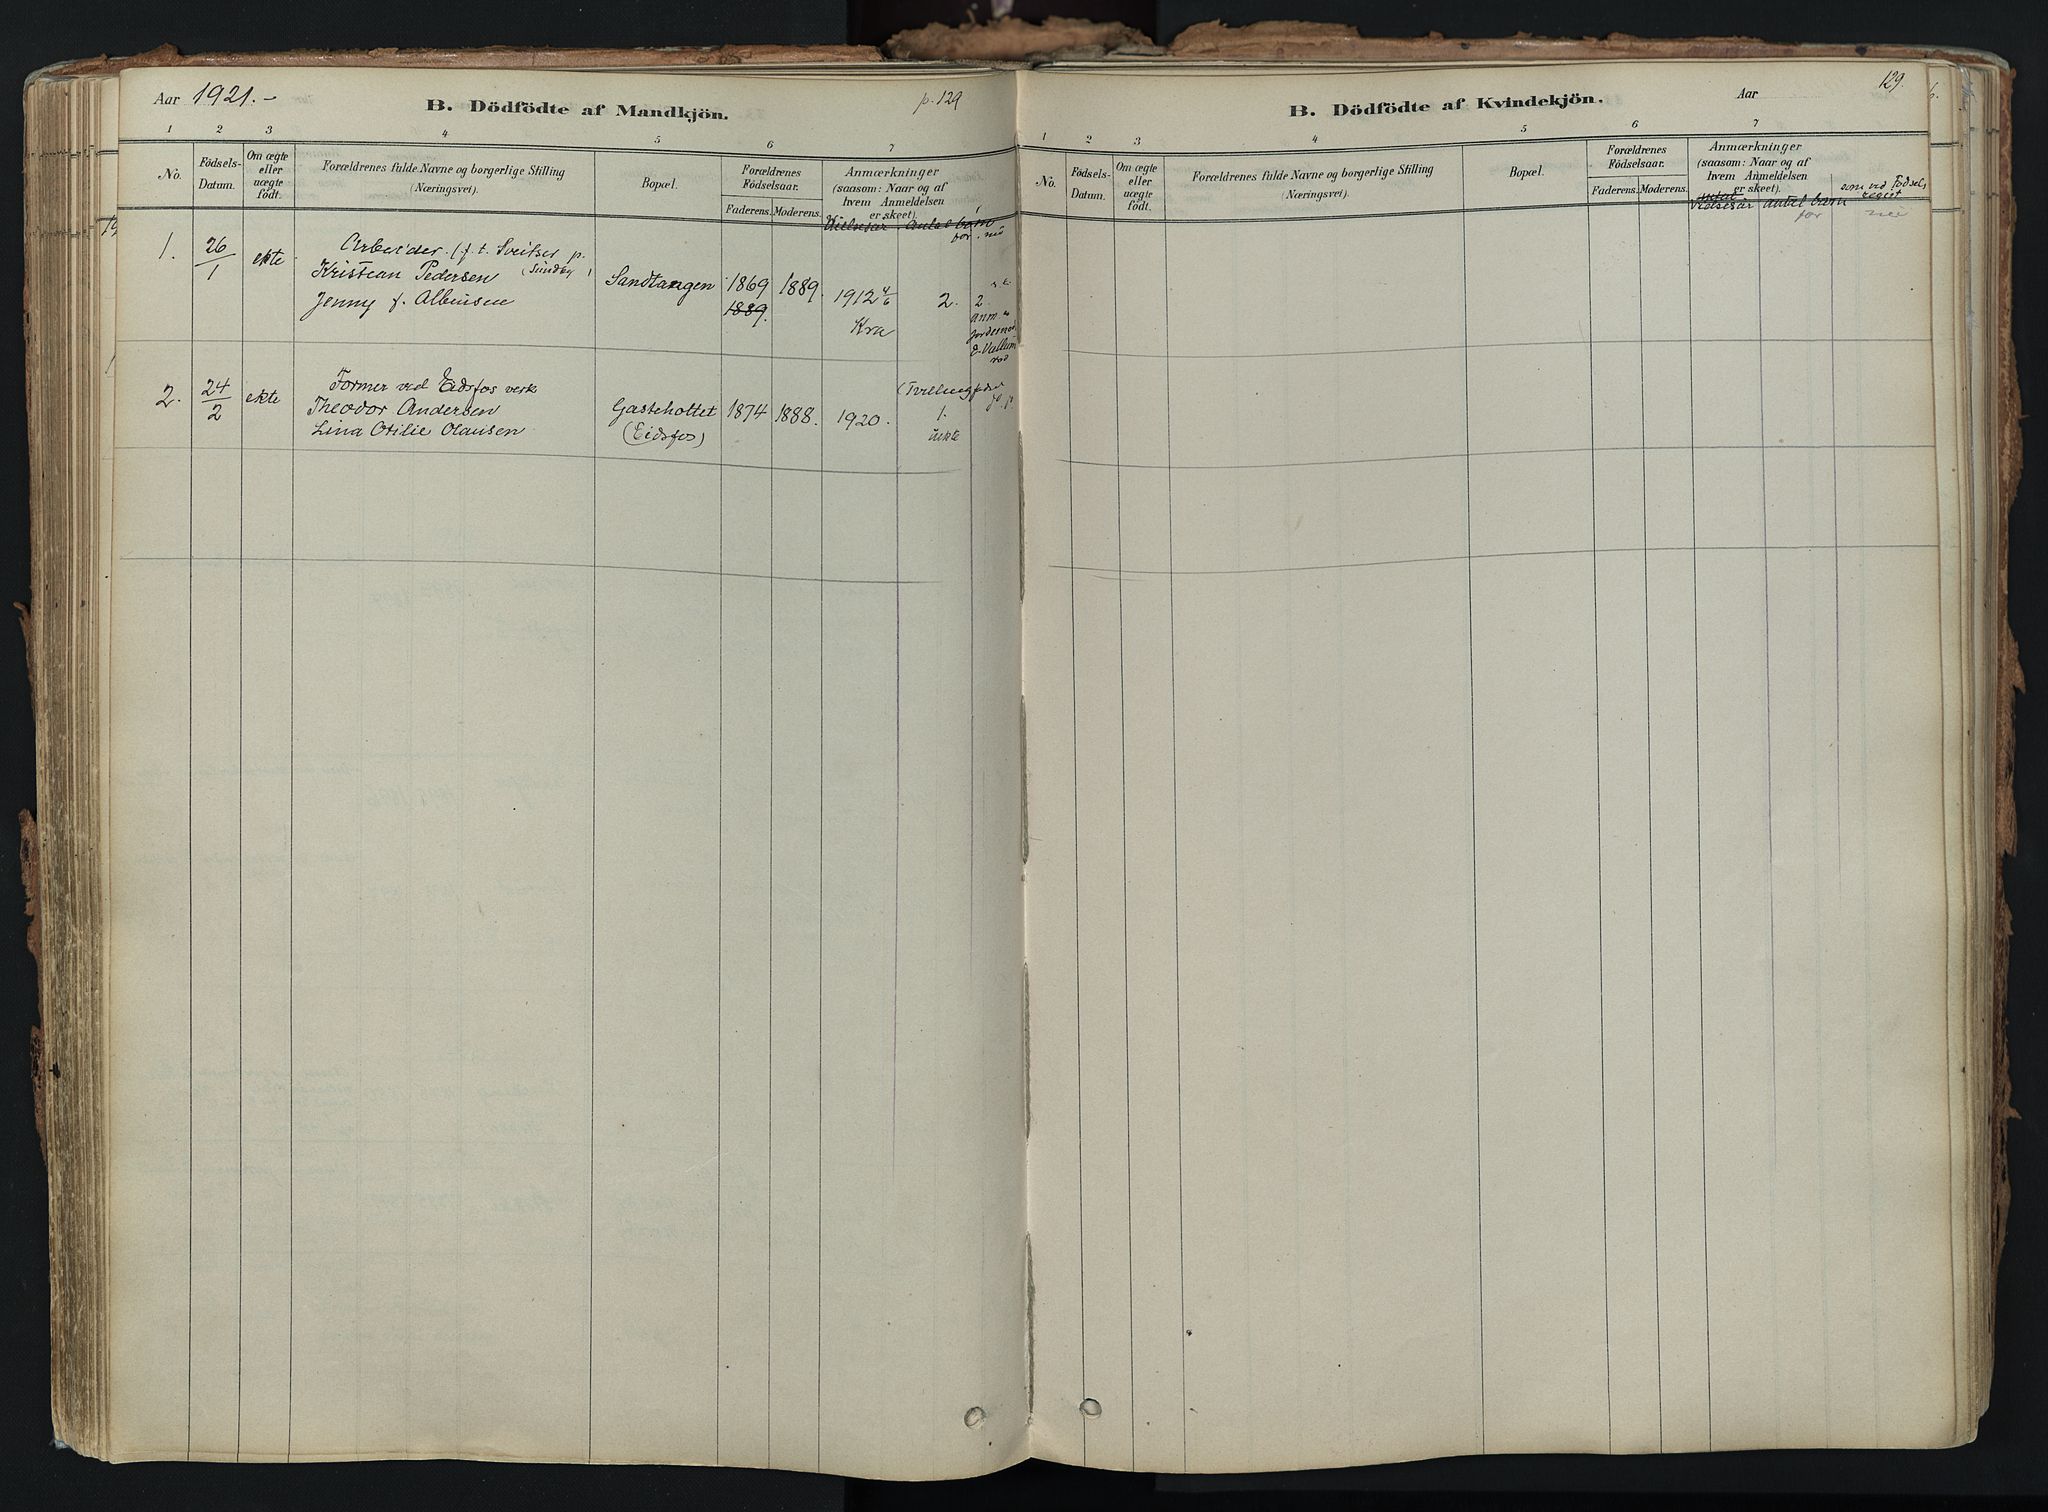 Aar 1921.-
B. Dödfödte af Mandkjön.
p. 129
1 2 3 4 5 6 7
No.
Födsels-Datum.
Om ægte eller uægte födt.
Forældrenes fulde Navne og borgerlige Stilling
(Næringsvei).
Bopæl.
Forældrenes Födselsaar.
Faderens. Moderens.
Anmærkninger
(saasom: Naar og af
hvem Anmeldelsen
er skeet).
Vielsesår Antal barn
før
1. 26/1 ekte
Arbeider. (f. t. Sveitser p.
Kristian Pedersen (Sundby)
Jenny f. Albinsen
Sandtangen
1869 1889.
1889.
1912 4/6
Kra
2. 2.
2. 24/2 ekte
Former ved Eidsfos verk
Theodor Andersen
Lina Otilie Olausen
Gastehottet
(Eidsfos)
1874 1888. 1920.
1.
uekte
129.
B. Dödfödte af Kvindekjön.
Aar
1 2 3 4 5 6 7
No.
Födsels-Datum.
Om ægte eller uægte födt.
Forældrenes fulde Navne og borgerlige Stilling
(Næringsvei).
Bopæl.
Forældrenes Födselsaar.
Faderens. Moderens.
Anmærkninger
(saasom: Naar og af
hvem Anmeldelsen
er skeet).
Vielsesår antal barn
før
som ved Fødsels
regist